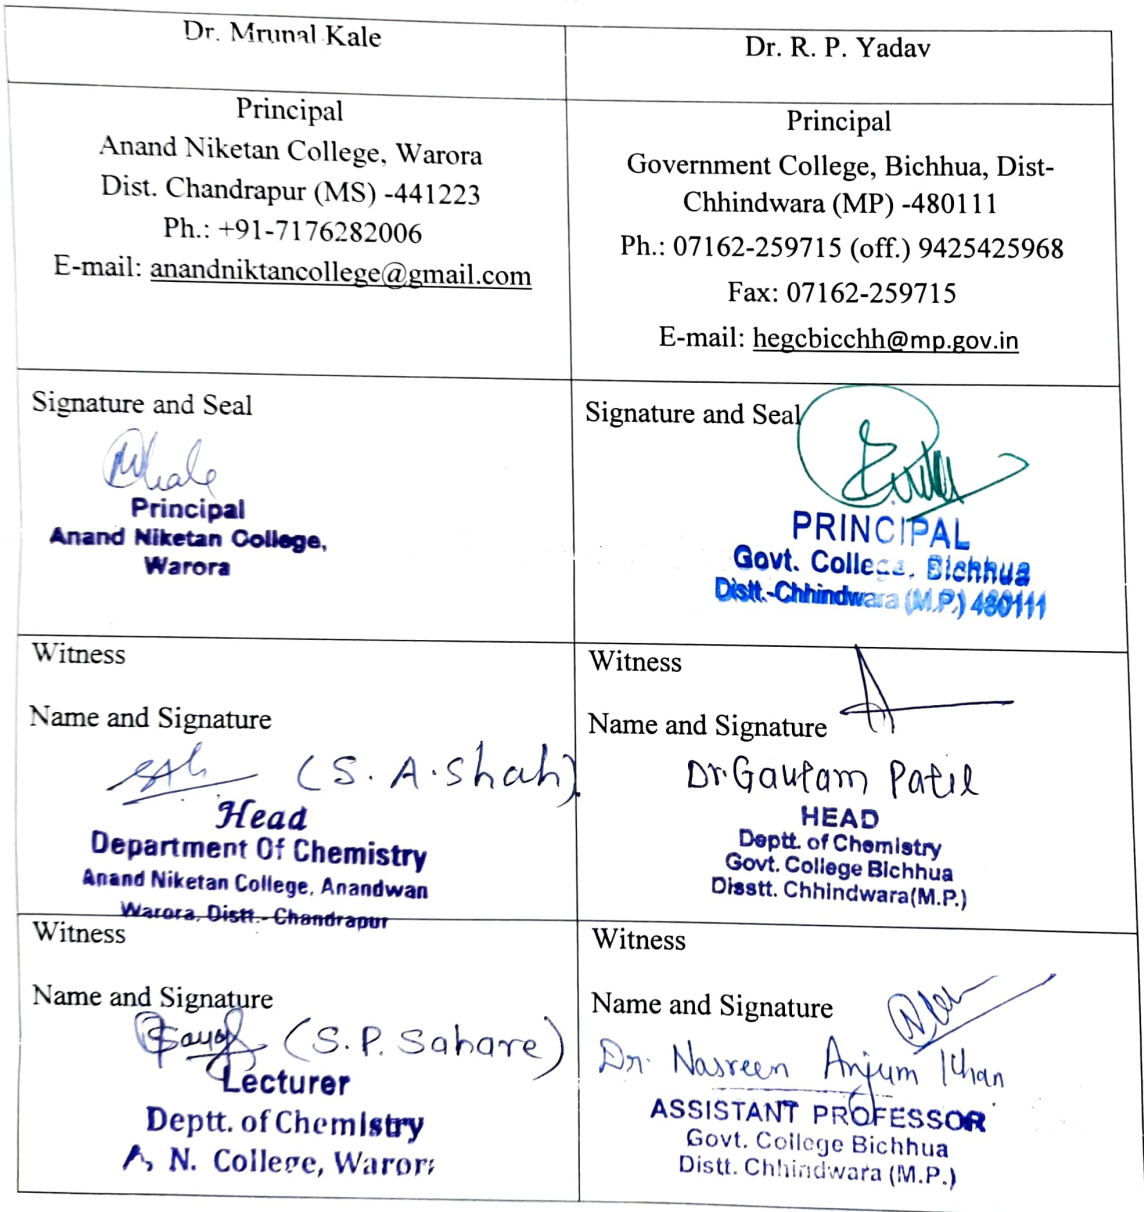 Dr. Mrunal Kale
Dr. R. P. Yadav
Principal
Anand Niketan College, Warora
Dist. Chandrapur (MS) -441223
Ph.: +91-7176282006
E-mail: anandniktancollege@gmail.com
Principal
Government College, Bichhua, Dist-
Chhindwara (MP) -480111
Ph.: 07162-259715 (off.) 9425425968
Fax: 07162-259715
E-mail: hegcbicchh@mp.gov.in
Signature and Seal
Principal
Anand Niketan College,
Warora
Signature and Seal
PRINCIPAL
Govt. College, Bichhua
Distt.-Chhindwara (M.P.) 480111
Witness
Name and Signature
(S. A. Shah)
Head
Department Of Chemistry
Anand Niketan College, Anandwan
Warora, Distt.- Chandrapur
Witness
Name and Signature
Dr. Gautam Patil
HEAD
Deptt. of Chemistry
Govt. College Bichhua
Disstt. Chhindwara(M.P.)
Witness
Name and Signature
(S.P. Sahare)
Lecturer
Deptt. of Chemistry
A. N. College, Warora
Witness
Name and Signature
Dr. Nasreen Anjum Khan
ASSISTANT PROFESSOR
Govt. College Bichhua
Distt. Chhindwara (M.P.)